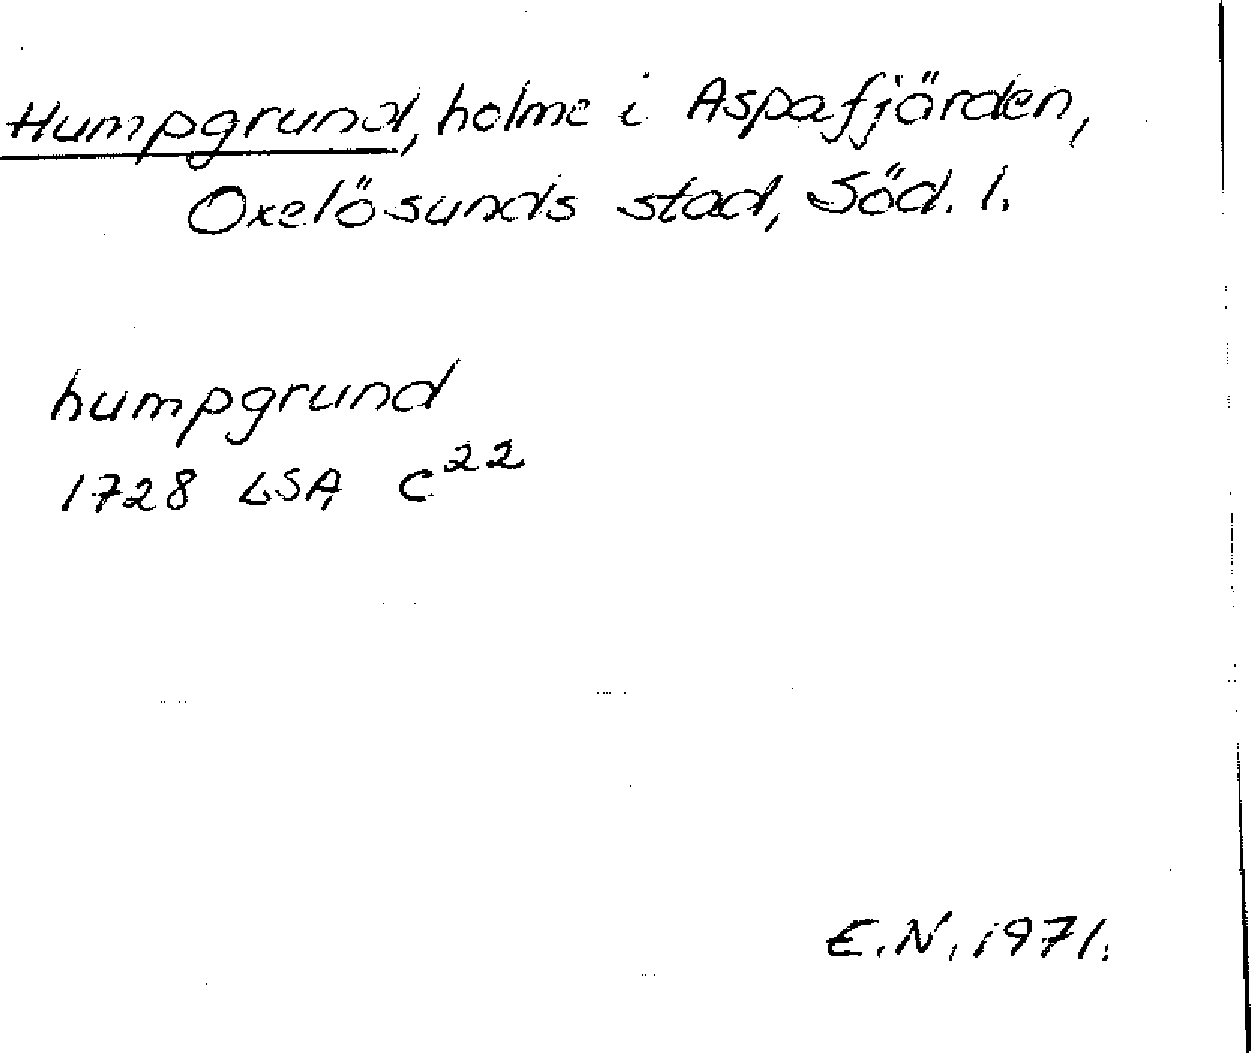 Humpgrund, holme i Aspafjärden,
Oxelösunds stad, Söd. l.
humpgrund
1728 LSA C²²
E.N. 1971.